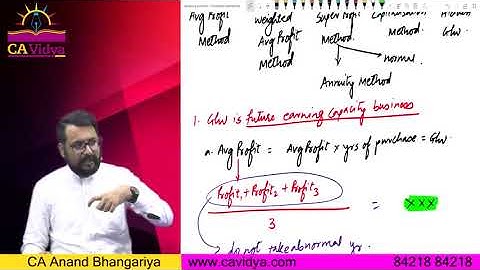 CA Vidya
Avg Profit Method
Weighted Avg Profit Method
Super Profit Method.
Capitalisation Method.
Hidden Glw.
normal.
Annuity Method
1. Glw is future earning capacity business
a. Avg Profit = Avg Profit x yrs of purchase = Glw.
Profit1 + Profit2 + Profit3
3
= xxx
do not take abnormal yr.
CA Anand Bhangariya www.cavidya.com 84218 84218